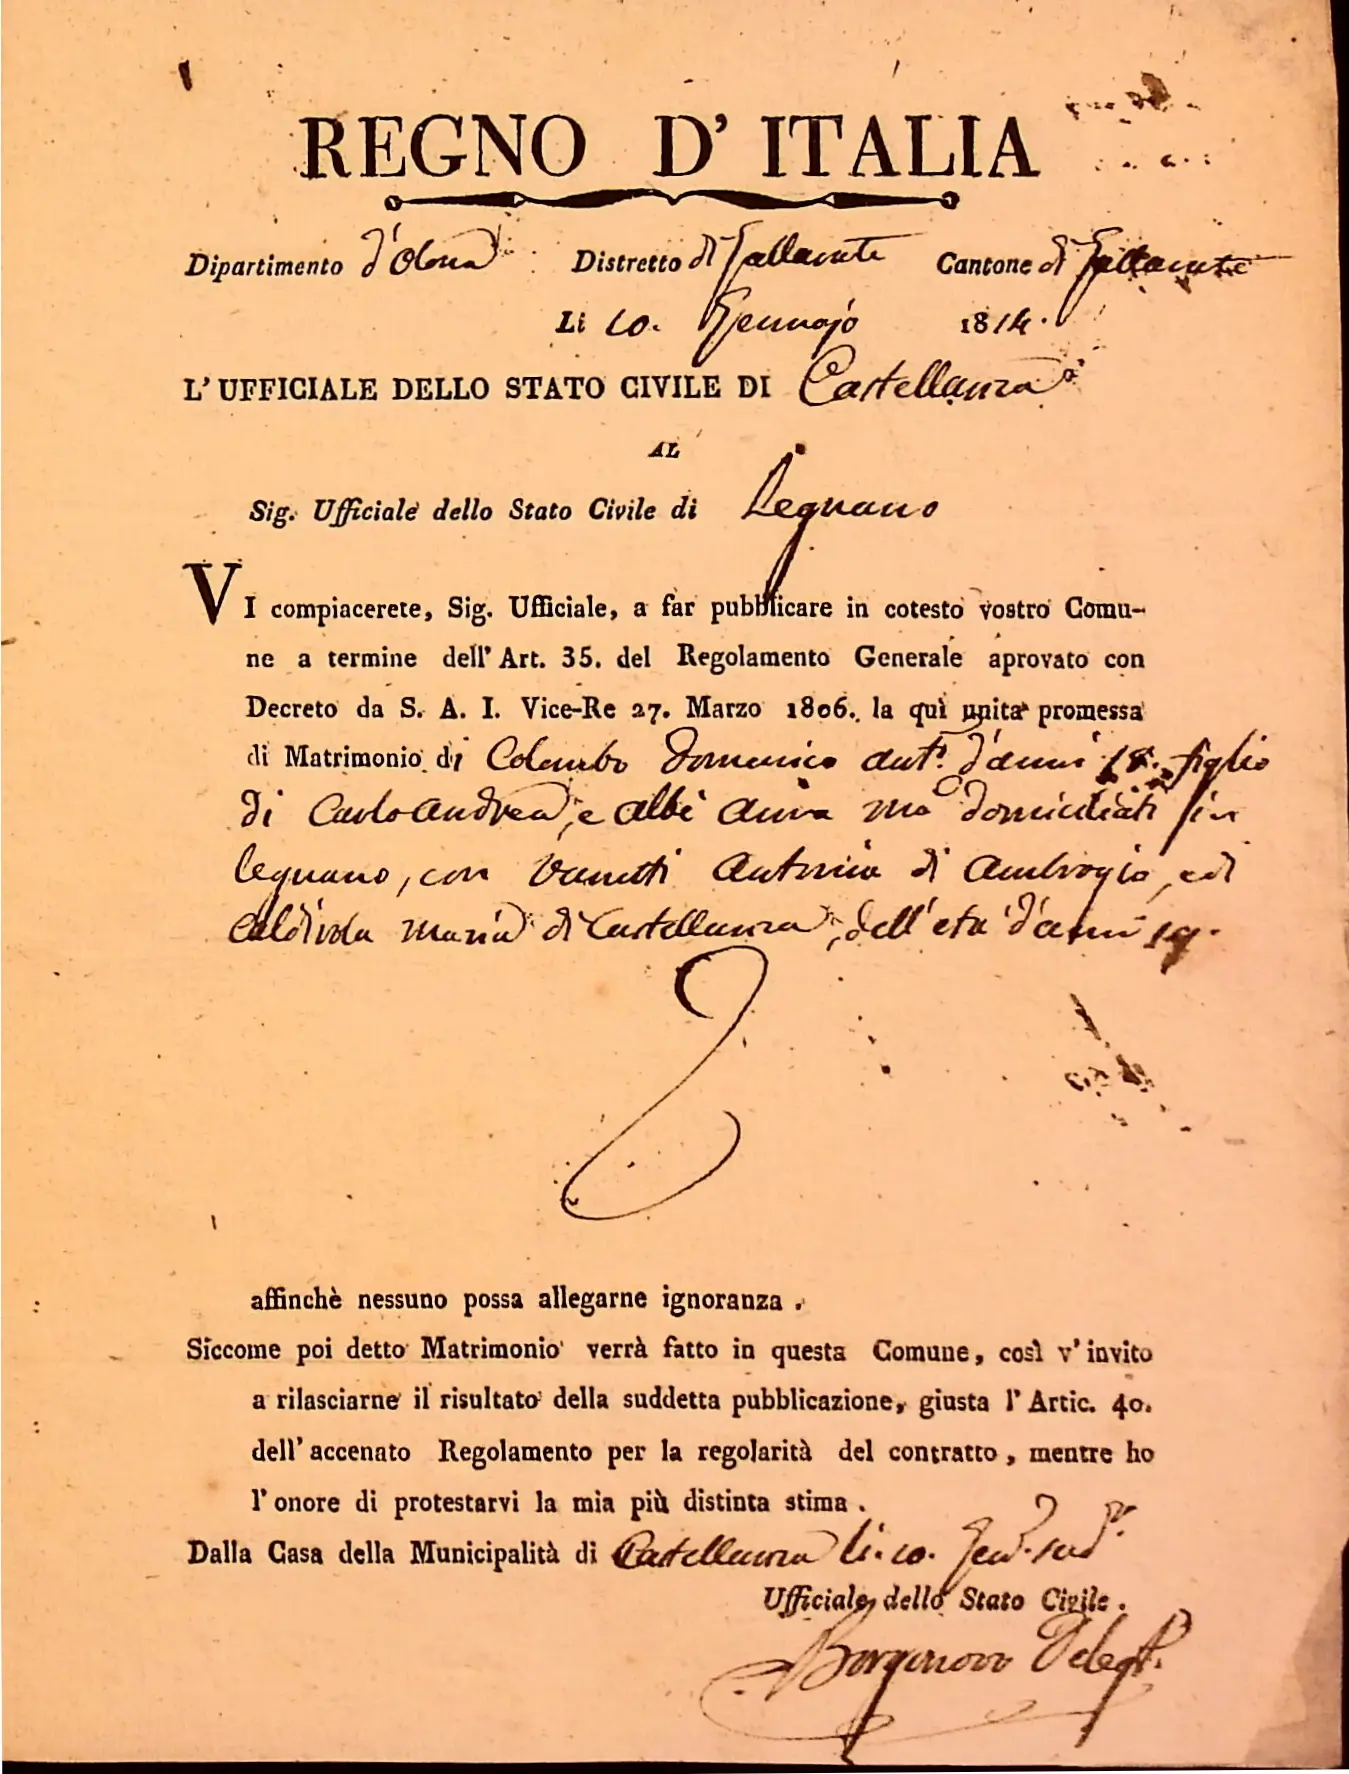 REGNO D' ITALIA
Dipartimento d'Olona Distretto di Gallarate Cantone di Gallarate
Li 10. Gennajo 1814.
L'UFFICIALE DELLO STATO CIVILE DI Castellanza
AL
Sig. Ufficiale dello Stato Civile di Legnano
VI compiacerete, Sig. Ufficiale, a far pubblicare in cotesto vostro Comu-
ne a termine dell' Art. 35. del Regolamento Generale aprovato con
Decreto da S. A. I. Vice-Re 27. Marzo 1806. la quì unita promessa
di Matrimonio di Colombo Domenico ant.° d'anni 18. figlio
di Carlo Andrea, e Albè Anna Ma domiciliati in
Legnano, con Vanetti Antonia di Ambrogio, ed
Maria di Castellanza, dell'età d'anni 19.
affinchè nessuno possa allegarne ignoranza .
Siccome poi detto Matrimonio verrà fatto in questa Comune, così v' invito
a rilasciarne il risultato della suddetta pubblicazione, giusta l' Artic. 40.
dell' accenato Regolamento per la regolarità del contratto, mentre ho
l' onore di protestarvi la mia più distinta stima .
Dalla Casa della Municipalità di Castellanza li. 10. Gen.° sud.°
Ufficiale dello Stato Civile.
Delegt.